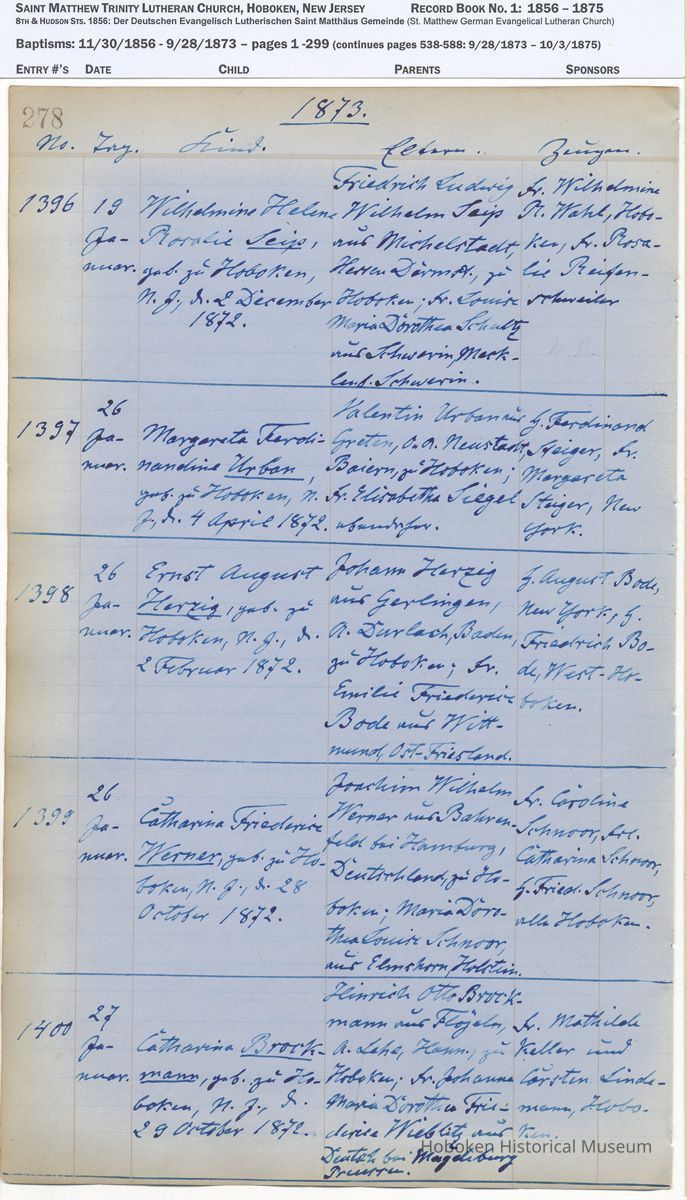 SAINT MATTHEW TRINITY LUTHERAN CHURCH, HOBOKEN, NEW JERSEY RECORD BOOK NO. 1: 1856 – 1875
8TH & HUDSON STS. 1856: Der Deutschen Evangelisch Lutherischen Saint Matthäus Gemeinde (St. Matthew German Evangelical Lutheran Church)
Baptisms: 11/30/1856 - 9/28/1873 – pages 1 -299 (continues pages 538-588: 9/28/1873 – 10/3/1875)
ENTRY #'S DATE CHILD PARENTS SPONSORS
278
1873.
No. Tag. Kind. Eltern. Zeugen.
1396
19
Ja-
nuar.
Wilhelmine Helene
Rosalie Seip,
geb. zu Hoboken,
N. J., d. 2 December
1872.
Friedrich Ludwig
Wilhelm Seip
aus Michelstadt,
Hessen Darmst., zu
Hoboken; Fr. Louise
Maria Dorothea Schultz
aus Schwerin, Meck-
lenb. Schwerin.
Fr. Wilhelmine
R. Wahl, Hobo-
ken, Fr. Rosa-
lie Reifen-
schweiler
1397
26
Ja-
nuar.
Margareta Ferdi-
nandine Urban,
geb. zu Hoboken, N.
J., d. 4 April 1872.
Valentin Urban aus
Greten, A. A. Neustadt,
Baiern, zu Hoboken;
Fr. Elisabetha Siegel
ebendaher.
H. Ferdinand
Steiger, Fr.
Margareta
Steiger, New
York.
1398
26
Ja-
nuar.
Ernst August
Herzig, geb. zu
Hoboken, N. J., d.
2 Februar 1872.
Johann Herzig
aus Gerlingen,
A. Durlach, Baden,
zu Hoboken; Fr.
Emilie Friederice
Bode aus Witt-
mund, Ost-Friesland.
H. August Bode,
New York, H.
Friedrich Bo-
de, West-Ho-
boken.
1399
26
Ja-
nuar.
Catharina Friederice
Werner, geb. zu Ho-
boken, N. J., d. 28
October 1872.
Joachim Wilhelm
Werner aus Bahren-
feld bei Hamburg,
Deutschland, zu Ho-
boken; Maria Doro-
thea Louise Schnoor,
aus Elmshorn, Holstein.
Fr. Caroline
Schnoor, Frl.
Catharina Schnoor,
H. Fried. Schnoor,
alle Hoboken.
1400
27
Ja-
nuar.
Catharina Brock-
mann, geb. zu Ho-
boken, N. J., d.
29 October 1872.
Hinrich Otto Brock-
mann aus Flögeln,
A. Lehe, Hann., zu
Hoboken; Fr. Johanna
Maria Dorothea Frie-
derike Wieblitz aus
bei Magdeburg
Preussen.
Fr. Mathilde
Keller und
Carsten Linde-
mann, Hobo-
ken.
Hoboken Historical Museum